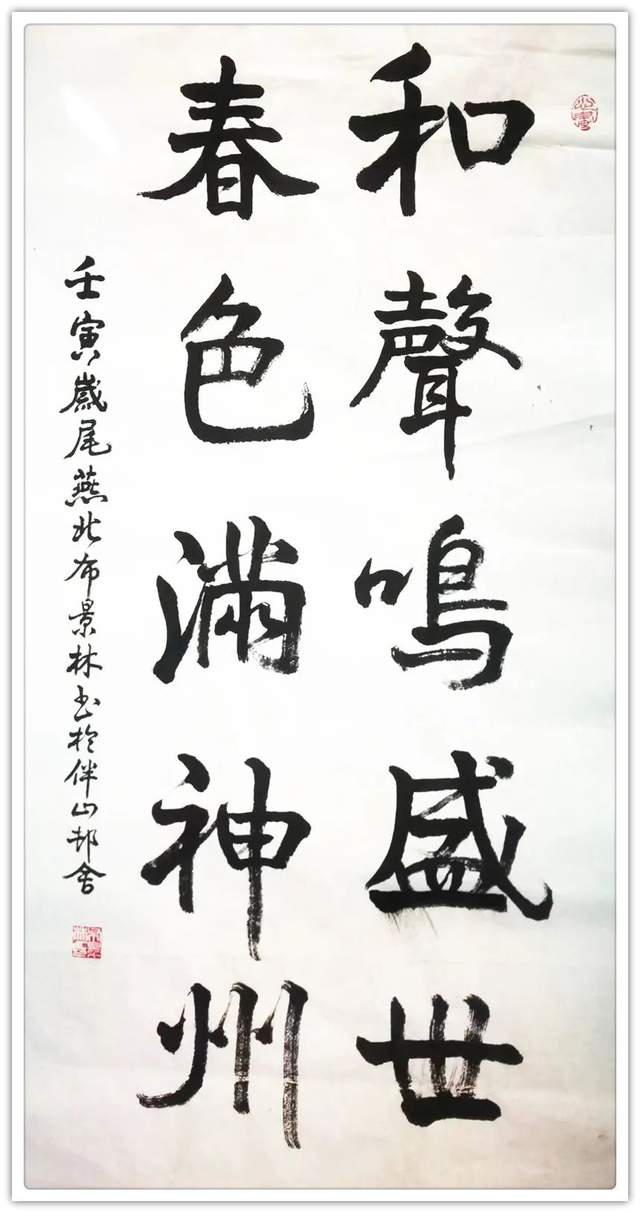 和聲鳴盛世
春色滿神州
壬寅歲尾燕北布景林书於伴山邨舍